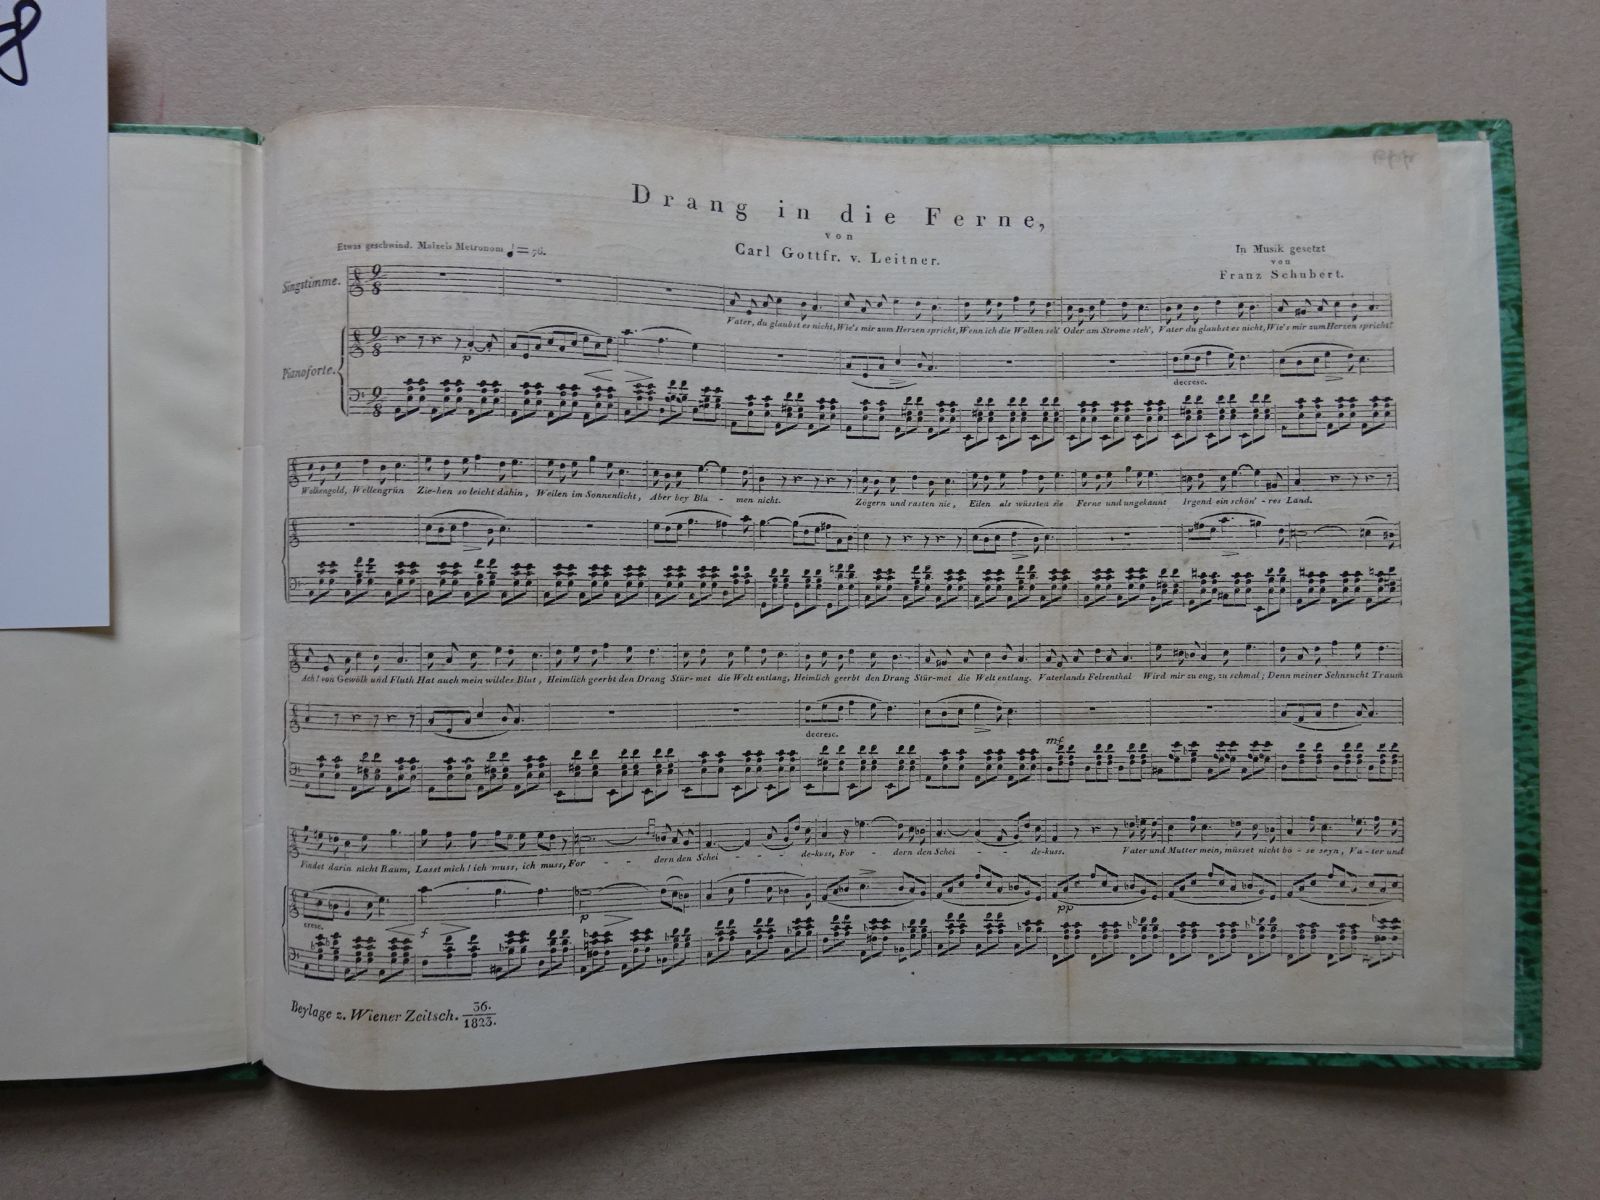 8
Drang in die Ferne,
von
Carl Gottfr. v. Leitner.
Etwas geschwind. Malzels Metronom ♩= 76.
In Musik gesetzt
von
Franz Schubert.
Singstimme.
Vater, du glaubst es nicht, Wie's mir zum Herzen spricht, Wenn ich die Wolken seh' Oder am Strome steh', Vater du glaubst es nicht, Wie's mir zum Herzen spricht!
Pianoforte.
p
decresc.
Wolkengold, Wellengrün Zie-hen so leicht dahin, Weilen im Sonnenlicht, Aber bey Blu - men nicht. Zögern und rasten nie, Eilen als wüssten sie Ferne und ungekannt Irgend ein schön' - res Land.
Ach! von Gewölk und Fluth Hat auch mein wildes Blut, Heimlich geerbt den Drang Stür-met die Welt entlang, Heimlich geerbt den Drang Stür-met die Welt entlang. Vaterlands Felsenthal Wird mir zu eng, zu schmal; Denn meiner Sehnsucht Traum
decresc.
mf
Findet darin nicht Raum, Lasst mich! ich muss, ich muss, For - - dern den Schei - - - de-kuss, For - dern den Schei de-kuss. Vater und Mutter mein, müsset nicht bö - se seyn, Va - ter und
cresc.
f
p
pp
Beylage z. Wiener Zeitsch. 36.
1823.